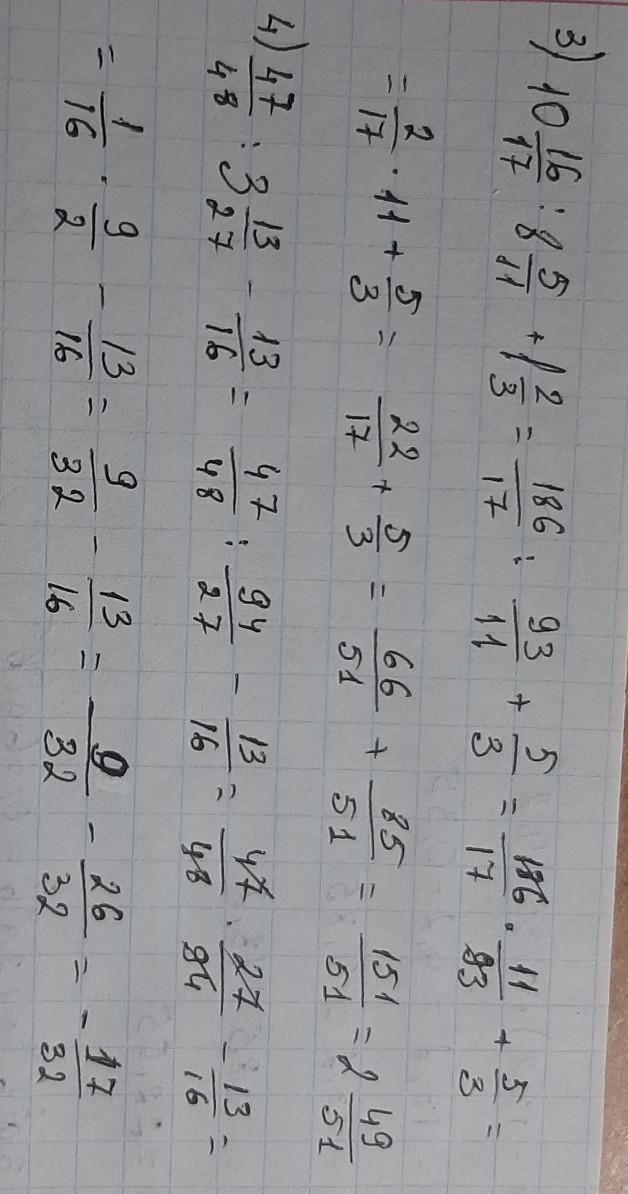 3) 10 16/17 : 8 5/11 + 1 2/3 = 186/17 : 93/11 + 5/3 = 186/17 · 11/93 + 5/3 =
= 2/17 · 11 + 5/3 = 22/17 + 5/3 = 66/51 + 85/51 = 151/51 = 2 49/51
4) 47/48 : 3 13/27 - 13/16 = 47/48 : 94/27 - 13/16 = 47/48 · 27/94 - 13/16 =
= 1/16 · 9/2 - 13/16 = 9/32 - 13/16 = 9/32 - 26/32 = - 17/32